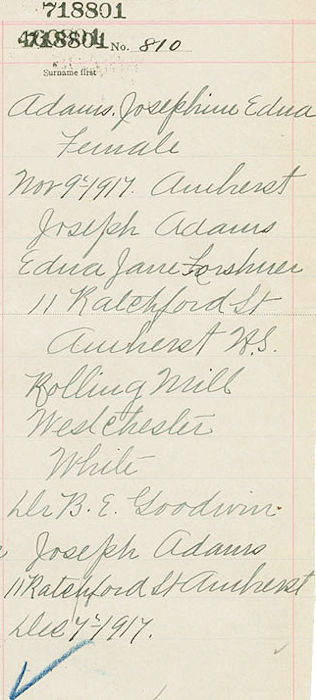 718801
718801 No. 810
Surname first
Adams, Josephine Edna
Female
Nov 9th 1917. Amherst
Joseph Adams
Edna Jane Forshner
11 Ratchford St
Amherst N.S.
Rolling Mill
Westchester
White
Dr B. E. Goodwin
Joseph Adams
11 Ratchford St Amherst
Dec 7th 1917.